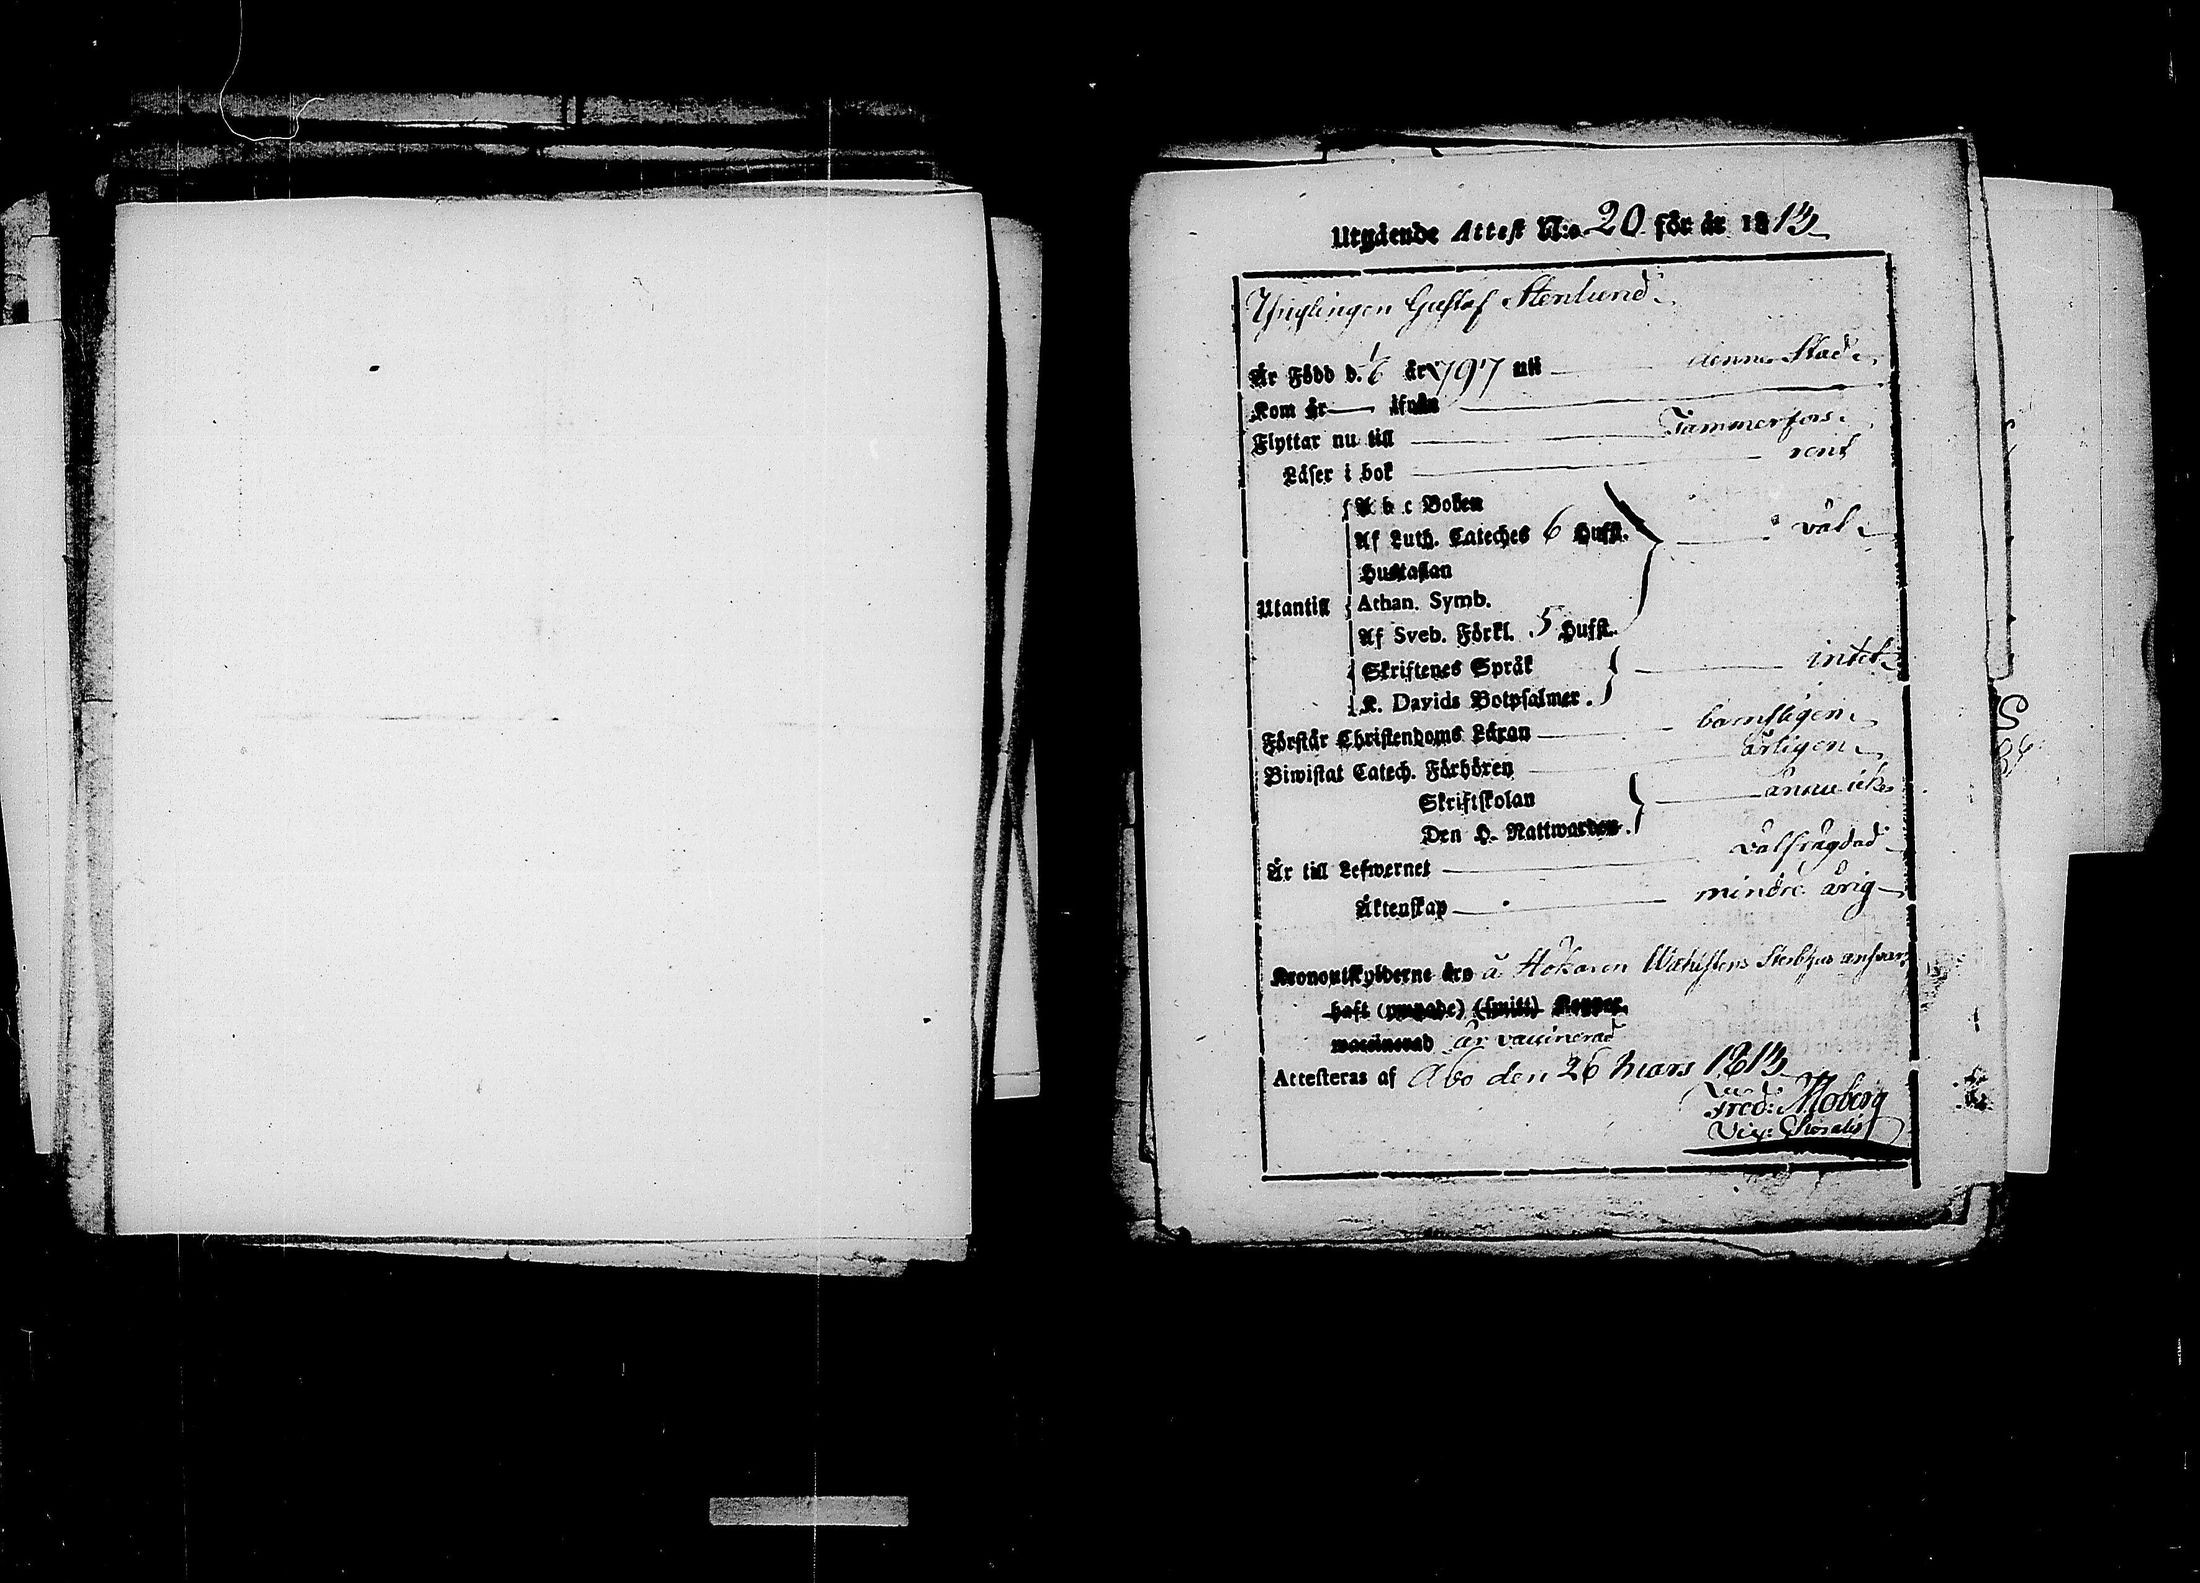 Utgående Attest N:o 20 för år 1813
Ynglingen Gustaf Stenlund
Är Född d. 1/6 år 1797 uti denne Stad
Kom år — ifrån —
Flyttar nu till Tammerfors
Läser i bok rent
A b c Boken
Af Luth. Cateches 6 Hufst. väl
Hustaflan
Utantill Athan. Symb.
Af Sveb. Förkl. 5 Hufst.
Skriftenes Språk intet
K. Davids Botpsalmer.
Förstår Christendoms Läran barnsligen
Biwistat Catech. Förhören årligen
Skriftskolan ännu icke
Den H. Nattwarden.
Är till Lefwernet välfrägdad
Äktenskap mindre årig
Kronoutskylderne äro å Hökaren Wahlstens Sterbhus ansvar
haft (smitt) Koppor
waccinerad är vaccinerad
Attesteras af Åbo den 26 Mars 1813
Fred: Moberg